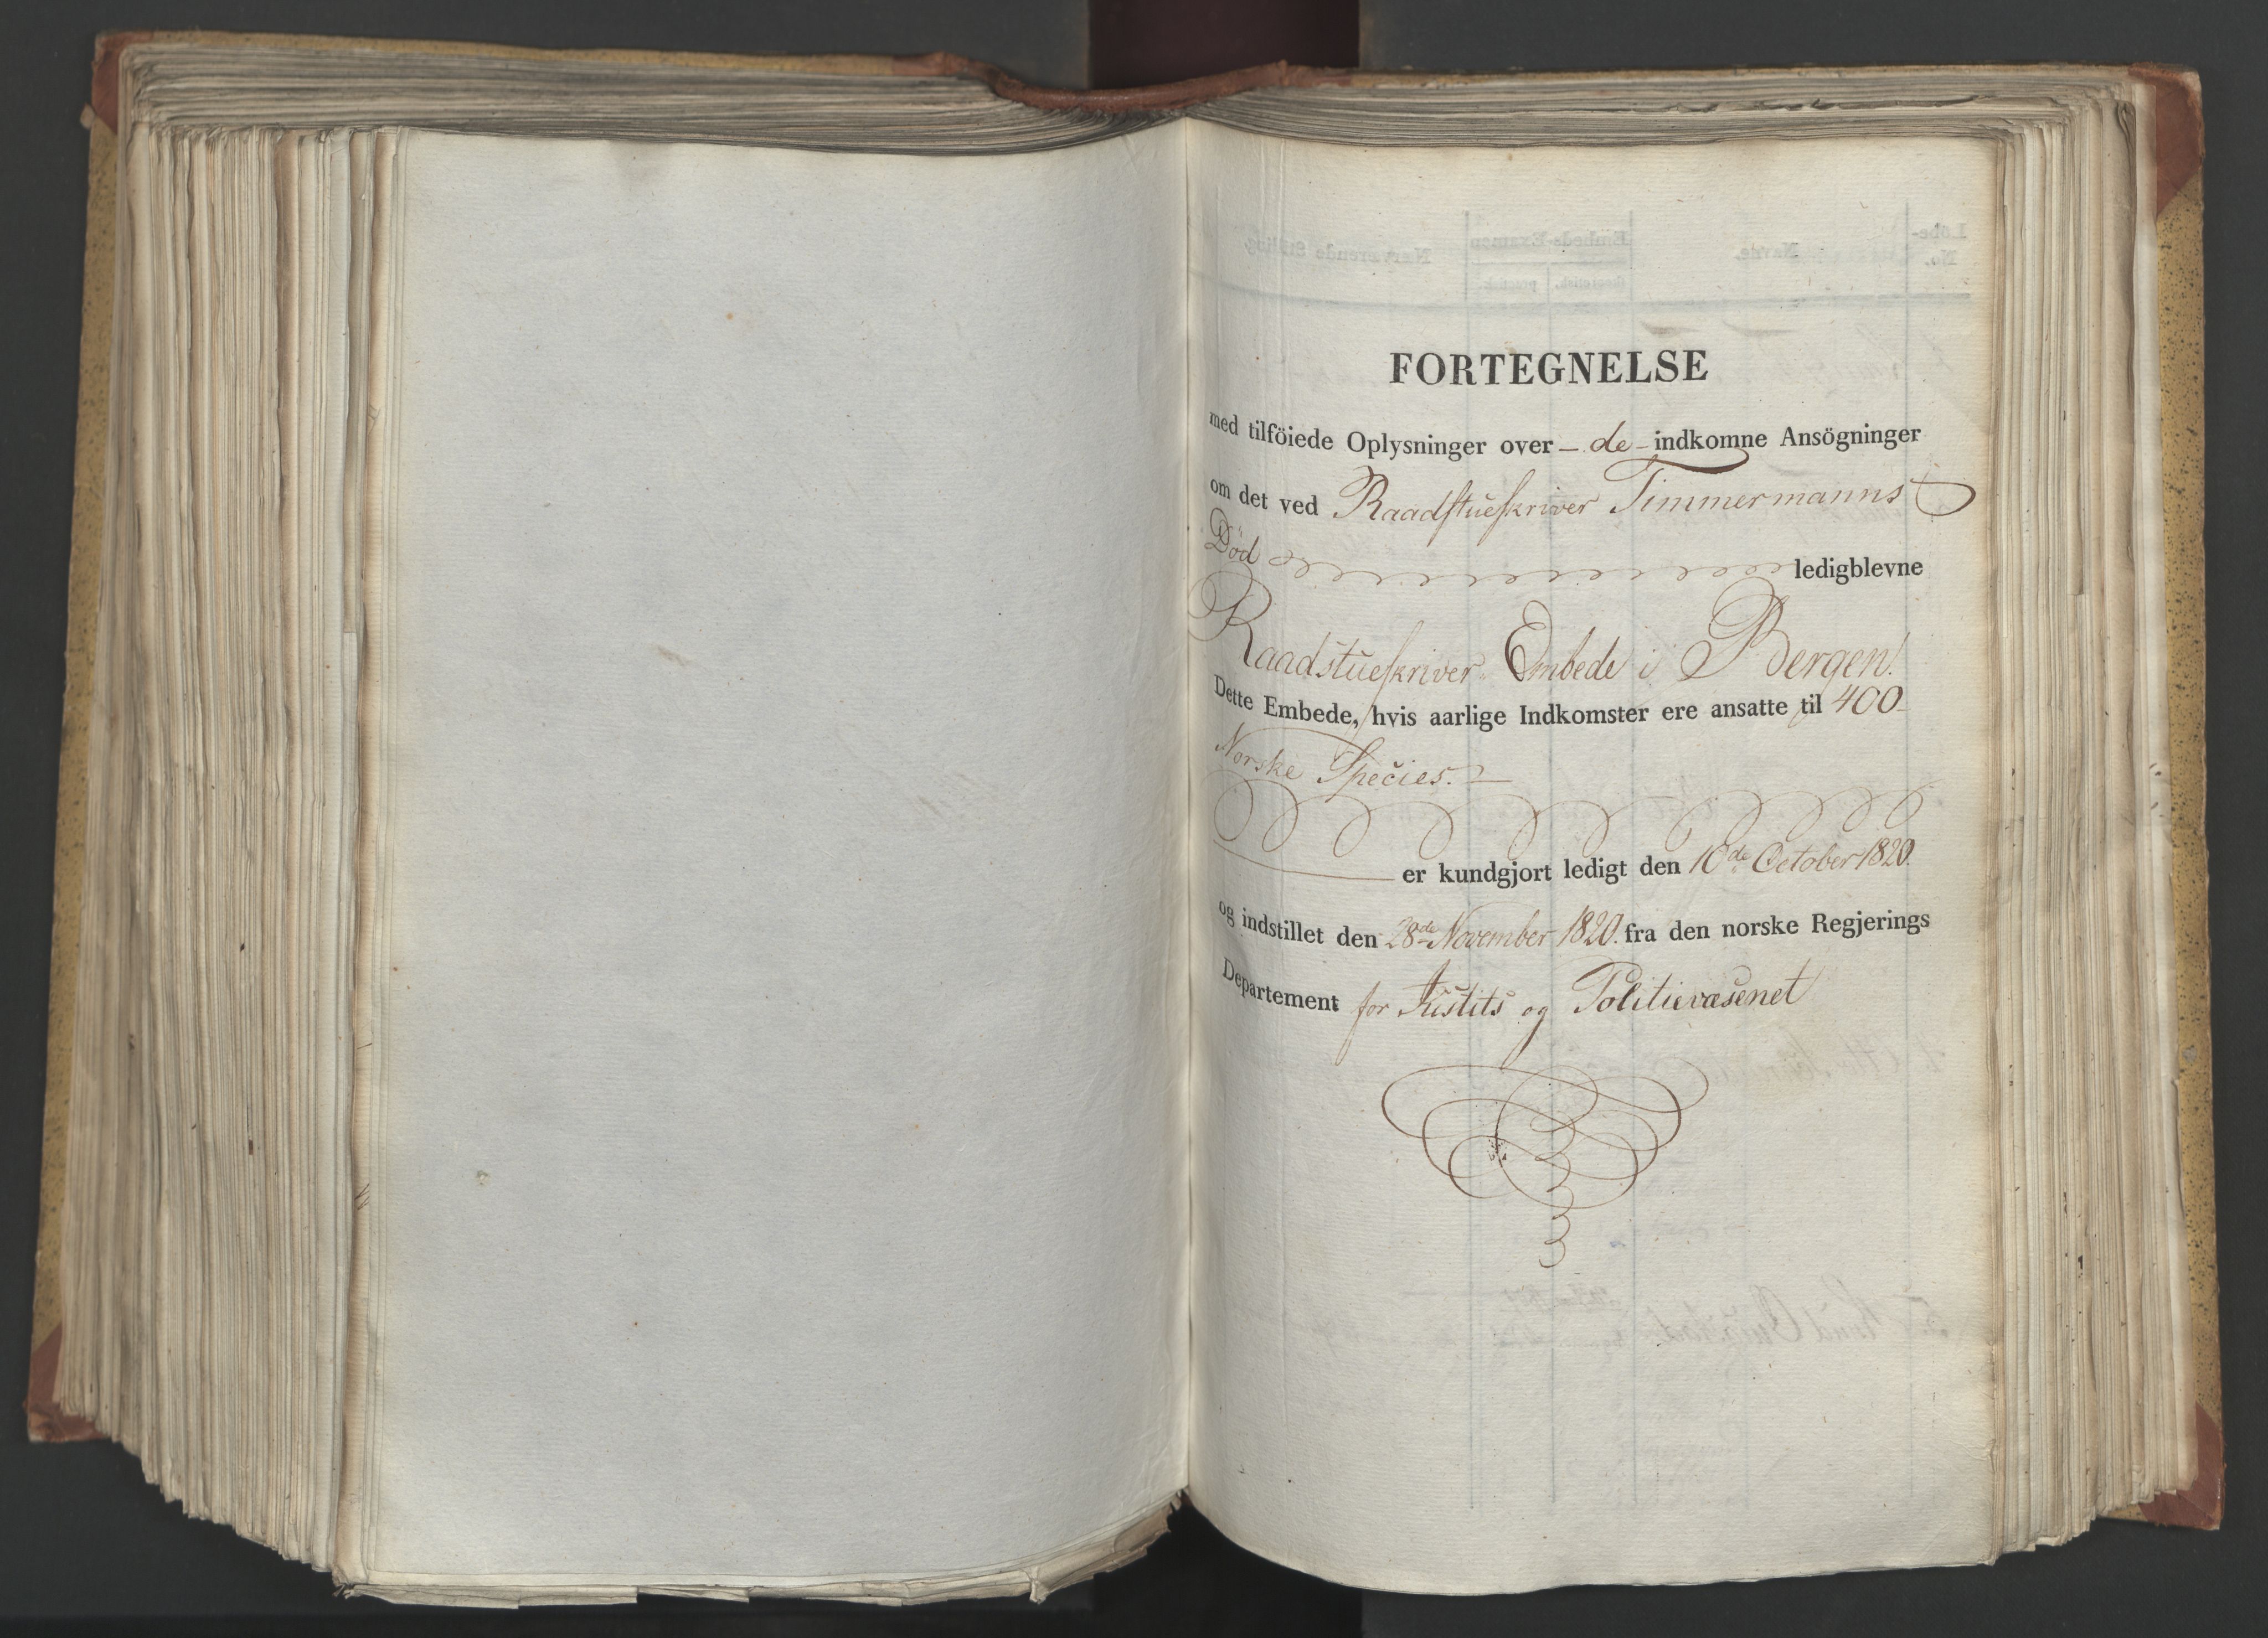 FORTEGNELSE
med tilföiede Oplysninger over – de – indkomne Ansögninger
om det ved Raadstueskriver Timmermanns
Död ledigblevne
Raadstueskriver Embede i Bergen.
Dette Embede, hvis aarlige Indkomster ere ansatte til 400
Norske Species. –
er kundgjort ledigt den 10de October 1820.
og indstillet den 28de November 1820. fra den norske Regjerings
Departement for Justits og Politievæsenet